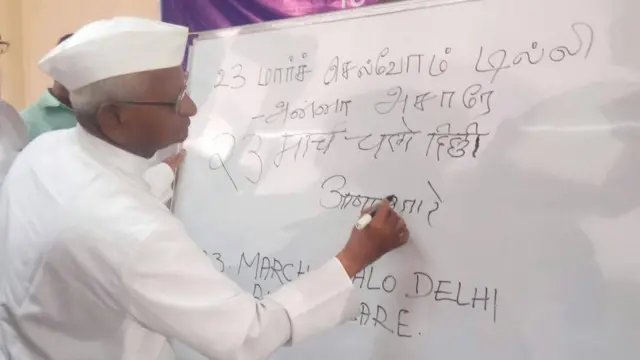 23 மார்ச் செல்வோம் டில்லி
-அன்னா அசாரே
२३ मार्च - चलो दिल्ली
3. MARCH ALO DELHI
ARE.